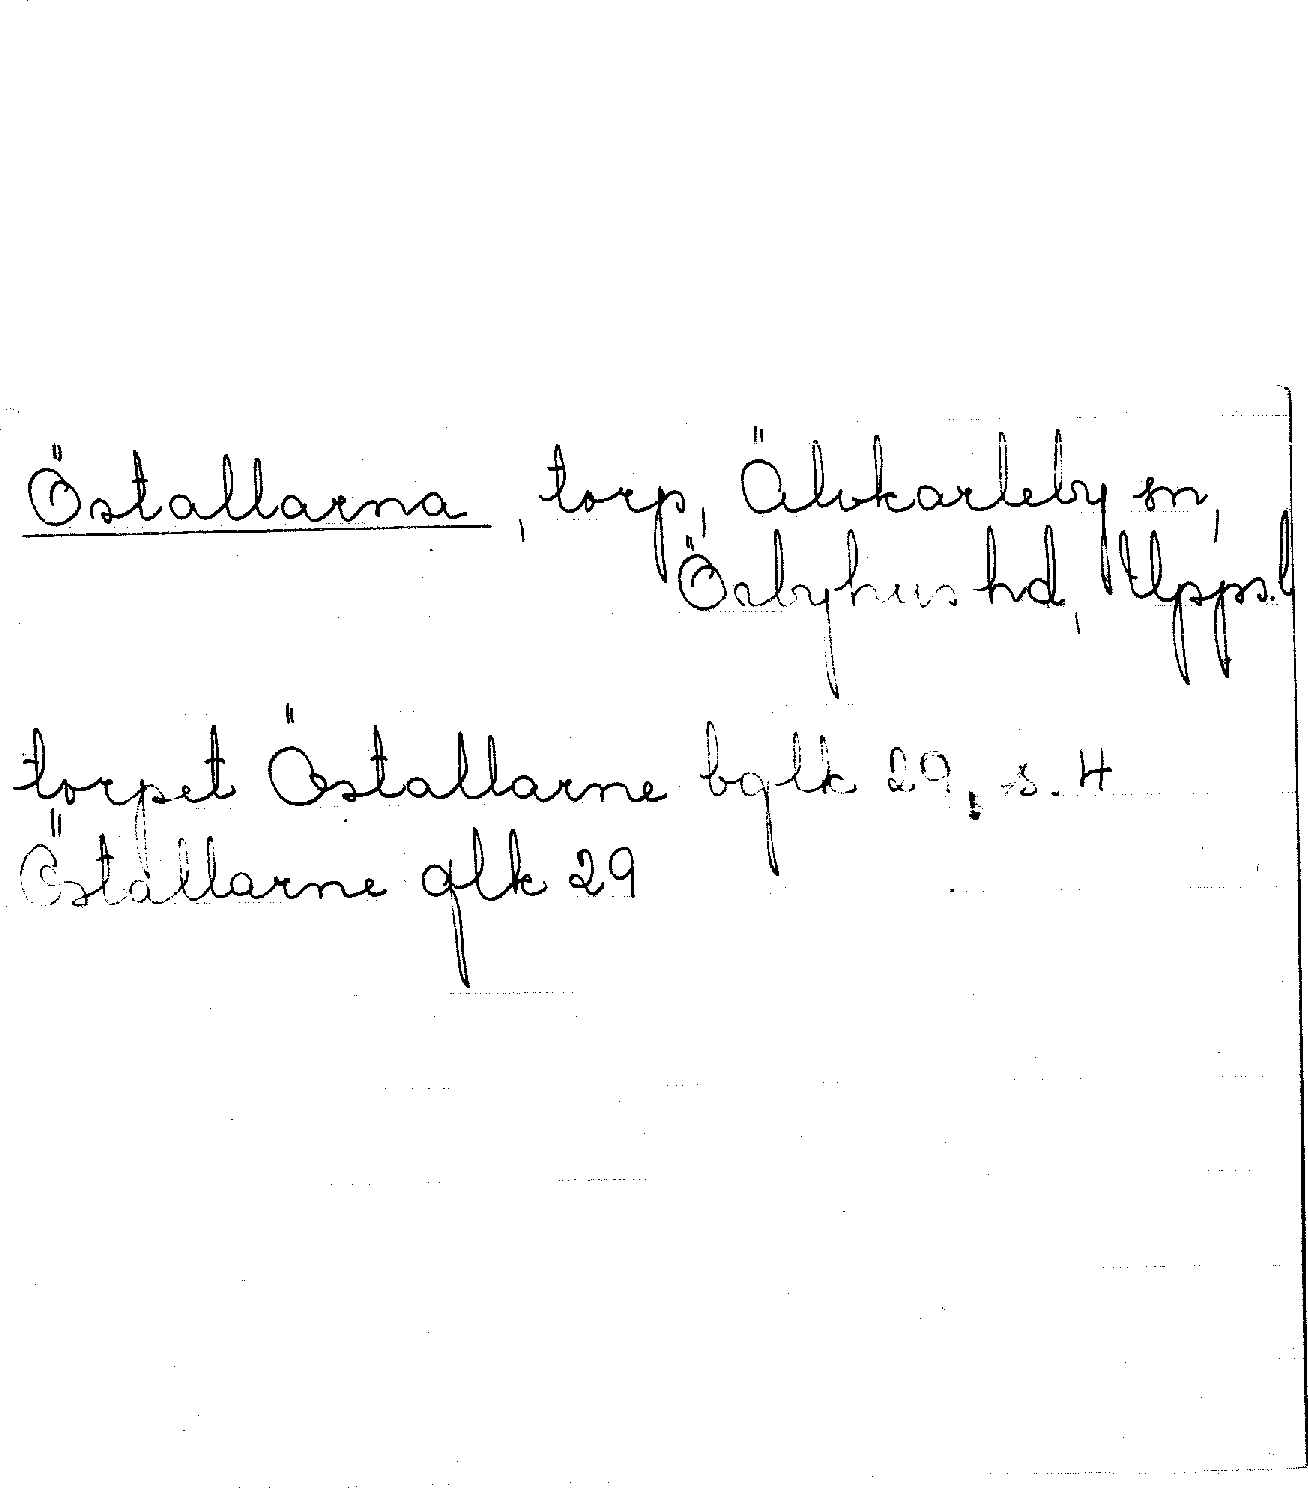 Östallarna, torp, Älvkarleby sn,
Örbyhus hd, Upps.l
torpet Östallarne bglk 29, s. 4
Östallarne glk 29